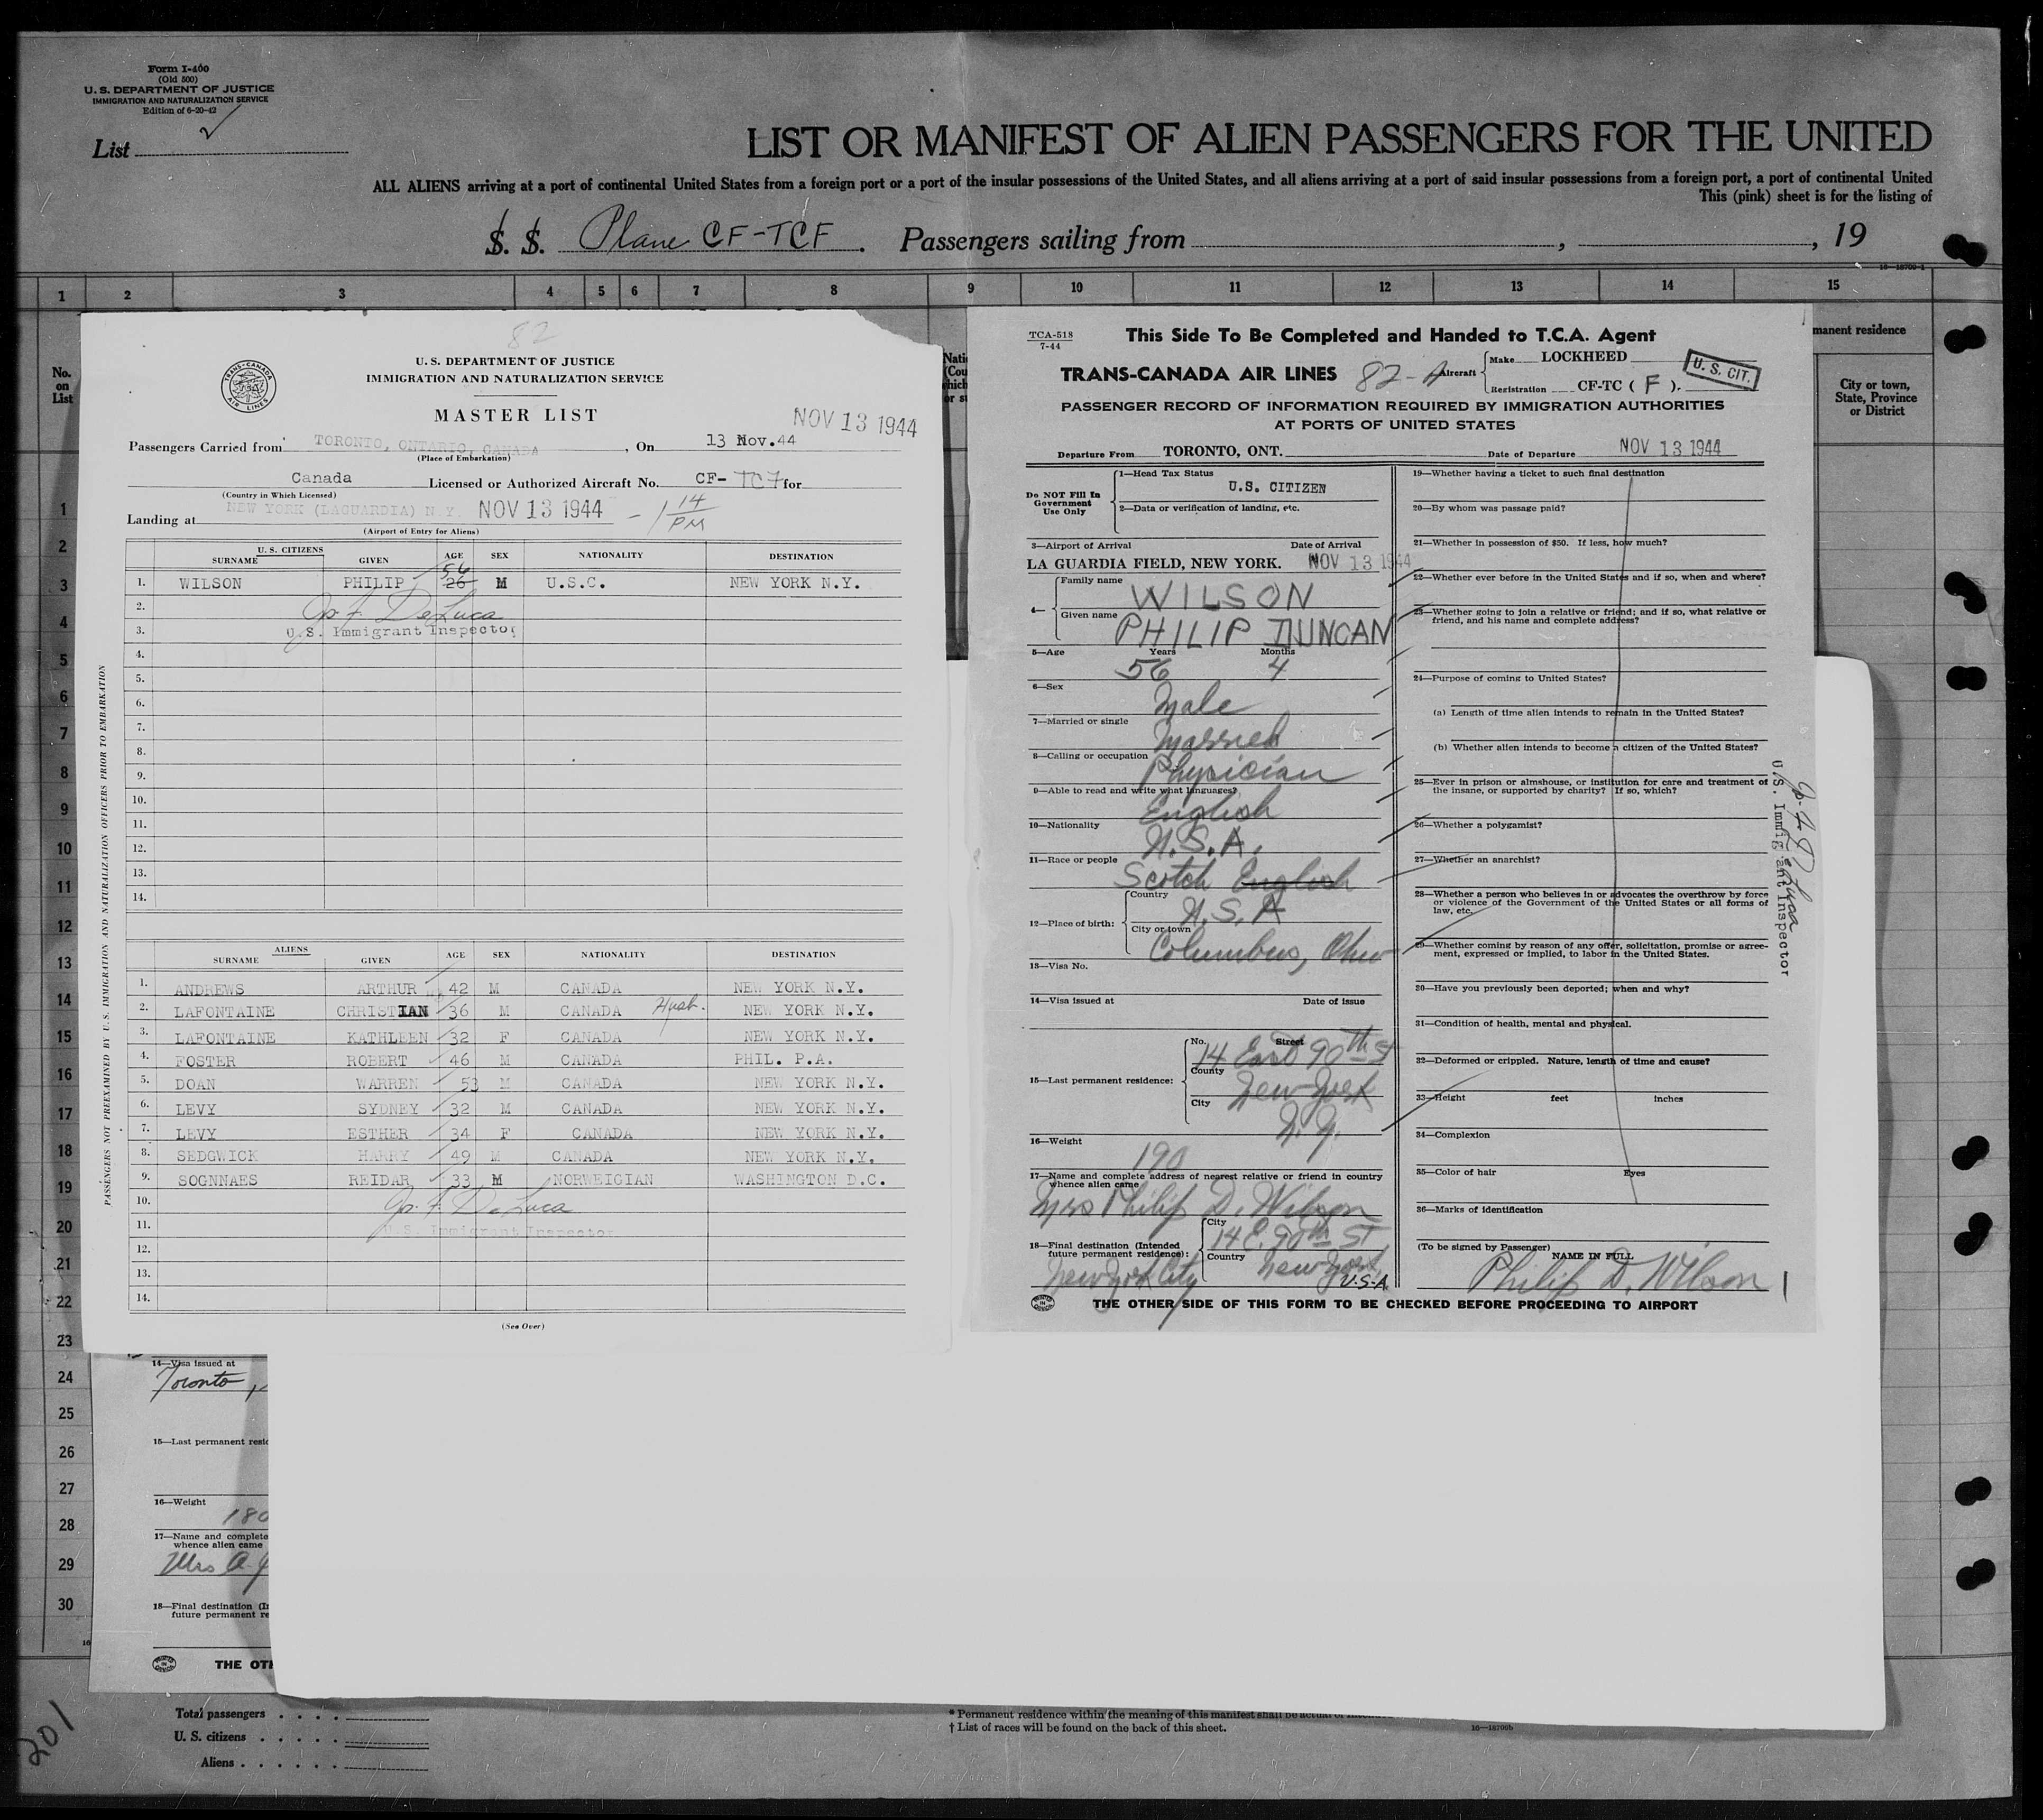 Form I-400
(Old 500)
U. S. DEPARTMENT OF JUSTICE
IMMIGRATION AND NATURALIZATION SERVICE
Edition of 6-20-42
List 2
LIST OR MANIFEST OF ALIEN PASSENGERS FOR THE UNITED
ALL ALIENS arriving at a port of continental United States from a foreign port or a port of the insular possessions of the United States, and all aliens arriving at a port of said insular possessions from a foreign port, a port of continental United
This (pink) sheet is for the listing of
S. S. Plane CF-TCF. Passengers sailing from , , 19
1 2 3 4 5 6 7 8 9 10 11 12 13 14 15
No. on List
manent residence
City or town, State, Province or District
1
2
3
4
5
6
7
8
9
10
11
12
13
14
15
16
17
18
19
20
21
22
23
24
25
26
27
28
29
30
82
TRANS-CANADA AIR LINES
U. S. DEPARTMENT OF JUSTICE
IMMIGRATION AND NATURALIZATION SERVICE
MASTER LIST
NOV 13 1944
Passengers Carried from TORONTO, ONTARIO, CANADA, On 13 Nov.44
(Place of Embarkation)
Canada Licensed or Authorized Aircraft No. CF- TC7 for
(Country in Which Licensed)
Landing at NEW YORK (LAGUARDIA) N.Y. NOV 13 1944 - 1 14 PM
(Airport of Entry for Aliens)
U. S. CITIZENS
SURNAME GIVEN AGE SEX NATIONALITY DESTINATION
56
1. WILSON PHILIP 26 M U.S.C. NEW YORK N.Y.
2. Jos. F. DeLuca
3. U.S. Immigrant Inspector
4.
5.
6.
7.
8.
9.
10.
11.
12.
13.
14.
ALIENS
SURNAME GIVEN AGE SEX NATIONALITY DESTINATION
1. ANDREWS ARTHUR 42 M CANADA NEW YORK N.Y.
2. LAFONTAINE CHRISTIAN 36 M CANADA Husb. NEW YORK N.Y.
3. LAFONTAINE KATHLEEN 32 F CANADA NEW YORK N.Y.
4. FOSTER ROBERT 46 M CANADA PHIL. P.A.
5. DOAN WARREN 53 M CANADA NEW YORK N.Y.
6. LEVY SYDNEY 32 M CANADA NEW YORK N.Y.
7. LEVY ESTHER 34 F CANADA NEW YORK N.Y.
8. SEDGWICK HARRY 49 M CANADA NEW YORK N.Y.
9. SOGNNAES REIDAR 33 M NORWEIGIAN WASHINGTON D.C.
10. Jos. F. DeLuca
11. U.S. Immigrant Inspector
12.
13.
14.
(See Over)
PASSENGERS NOT PREEXAMINED BY U.S. IMMIGRATION AND NATURALIZATION OFFICERS PRIOR TO EMBARKATION
TCA-518
7-44
This Side To Be Completed and Handed to T.C.A. Agent
TRANS-CANADA AIR LINES 82-A Aircraft Make LOCKHEED
Registration CF-TC ( F ).
U. S. CIT.
PASSENGER RECORD OF INFORMATION REQUIRED BY IMMIGRATION AUTHORITIES
AT PORTS OF UNITED STATES
Departure From TORONTO, ONT. Date of Departure NOV 13 1944
Do NOT Fill In
Government
Use Only
1—Head Tax Status
U.S. CITIZEN
2—Data or verification of landing, etc.
3—Airport of Arrival Date of Arrival
LA GUARDIA FIELD, NEW YORK. NOV 13 1944
4— Family name WILSON
Given name PHILIP DUNCAN
5—Age Years 56 Months 4
6—Sex Male
7—Married or single Married
8—Calling or occupation Physician
9—Able to read and write what languages? English
10—Nationality U.S.A.
11—Race or people Scotch English
12—Place of birth: Country U.S.A
City or town Columbus, Ohio
13—Visa No.
14—Visa issued at Date of issue
15—Last permanent residence: No. Street 14 East 90th St
County New York
City N.Y.
16—Weight 190
17—Name and complete address of nearest relative or friend in country
whence alien came
Mrs Philip D. Wilson
18—Final destination (Intended
future permanent residence): City 14 E. 90th St
New York City Country New York
U.S.A
19—Whether having a ticket to such final destination
20—By whom was passage paid?
21—Whether in possession of $50. If less, how much?
22—Whether ever before in the United States and if so, when and where?
23—Whether going to join a relative or friend; and if so, what relative or
friend, and his name and complete address?
24—Purpose of coming to United States?
(a) Length of time alien intends to remain in the United States?
(b) Whether alien intends to become a citizen of the United States?
25—Ever in prison or almshouse, or institution for care and treatment of
the insane, or supported by charity? If so, which?
26—Whether a polygamist?
27—Whether an anarchist?
28—Whether a person who believes in or advocates the overthrow by force
or violence of the Government of the United States or all forms of
law, etc.
29—Whether coming by reason of any offer, solicitation, promise or agree-
ment, expressed or implied, to labor in the United States.
30—Have you previously been deported; when and why?
31—Condition of health, mental and physical.
32—Deformed or crippled. Nature, length of time and cause?
33—Height feet inches
34—Complexion
35—Color of hair Eyes
36—Marks of identification
(To be signed by Passenger)
NAME IN FULL
Philip D. Wilson
THE OTHER SIDE OF THIS FORM TO BE CHECKED BEFORE PROCEEDING TO AIRPORT
Jos. F. DeLuca
U.S. Immigrant Inspector
14—Visa issued at
Toronto,
15—Last permanent resid
16—Weight
180
17—Name and complete
whence alien came
Mrs A.
18—Final destination (In
future permanent re
THE OTH
Total passengers
U. S. citizens
Aliens
201
* Permanent residence within the meaning of this manifest shall be actual or
† List of races will be found on the back of this sheet.